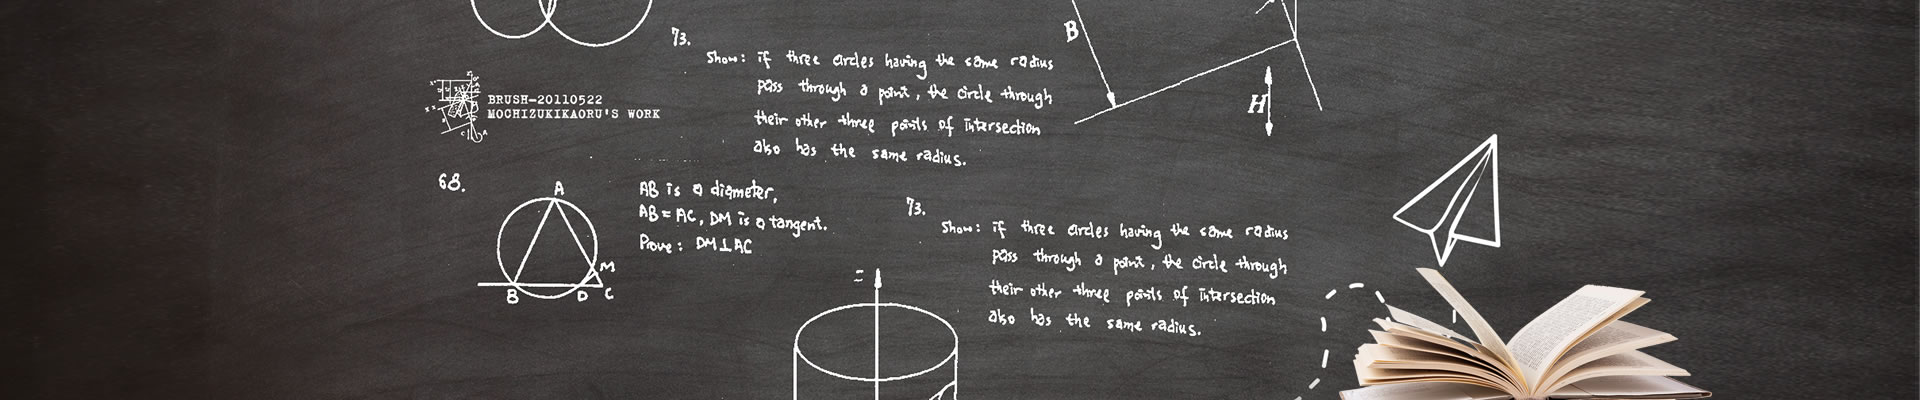 73.
Show: if three circles having the same radius
pass through a point, the circle through
their other three points of intersection
also has the same radius.
B
H
BRUSH-20110522
MOCHIZUKIKAORU'S WORK
68.
A
M
B D C
AB is a diameter,
AB = AC, DM is a tangent.
Prove: DM⊥AC
73.
Show: if three circles having the same radius
pass through a point, the circle through
their other three points of intersection
also has the same radius.